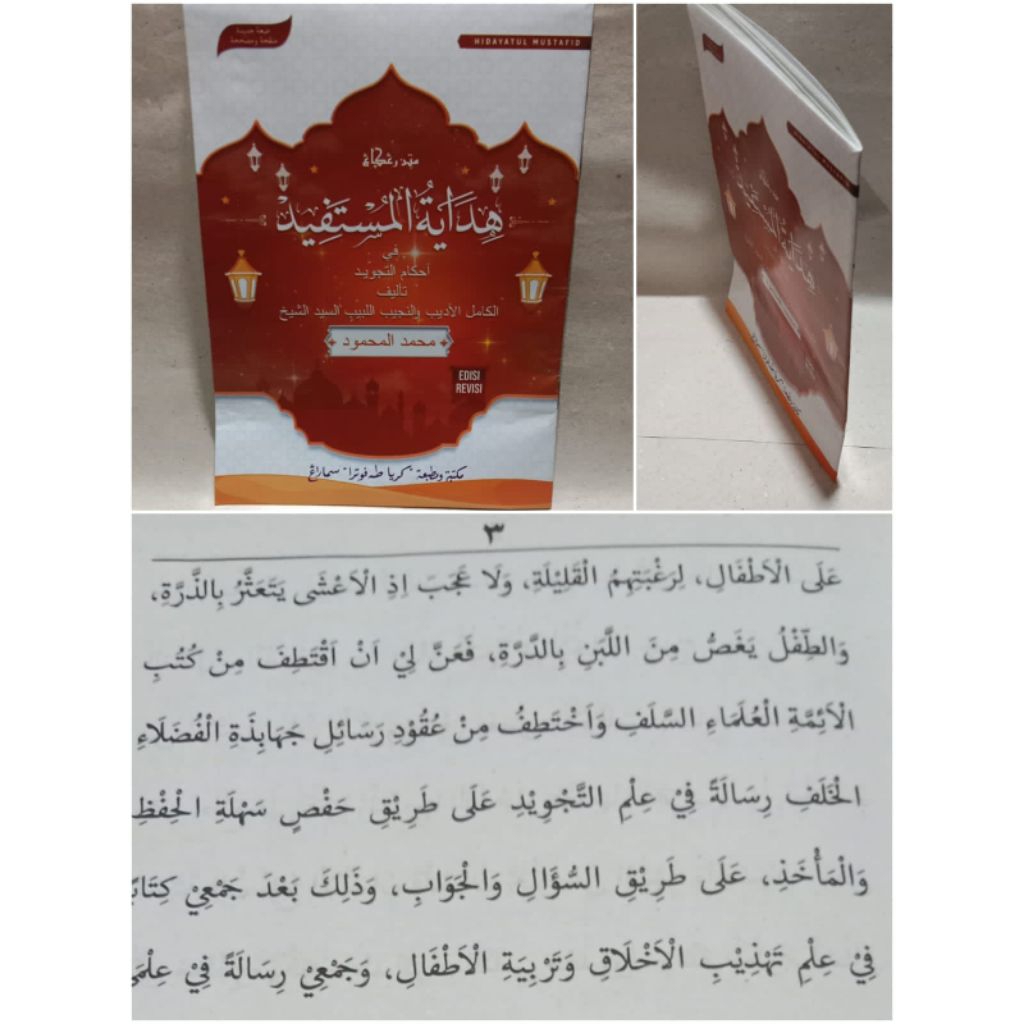 طبعة جديدة
منقحة ومصححة
HIDAYATUL MUSTAFID
هِدَايَةُ الْمُسْتَفِيْد
في
أحكام التجويد
تأليف
الكامل الأديب والنجيب اللبيب السيد الشيخ
محمد المحمود
EDISI
REVISI
مكتبة ومطبعة "كريا طه فوترا" سماراڠ
٣
عَلَى الْاَطْفَالِ، لِرَغْبَتِهِمُ الْقَلِيْلَةِ، وَلَا عَجَبَ اِذِ الْاَعْشَى يَتَعَثَّرُ بِالذَّرَّةِ،
وَالطِّفْلُ يَغَصُّ مِنَ اللَّبَنِ بِالدَّرَّةِ، فَعَنَّ لِيْ اَنْ اَقْتَطِفَ مِنْ كُتُبِ
الْاَئِمَّةِ الْعُلَمَاءِ السَّلَفِ وَاَخْتَطِفُ مِنْ عُقُوْدِ رَسَائِلِ جَهَابِذَةِ الْفُضَلَاءِ
الْخَلَفِ رِسَالَةً فِيْ عِلْمِ التَّجْوِيْدِ عَلَى طَرِيْقِ حَفْصٍ سَهْلَةِ الْحِفْظِ
وَالْمَأْخَذِ، عَلَى طَرِيْقِ السُّؤَالِ وَالْجَوَابِ، وَذَلِكَ بَعْدَ جَمْعِيْ
فِيْ عِلْمِ تَهْذِيْبِ الْاَخْلَاقِ وَتَرْبِيَةِ الْاَطْفَالِ، وَجَمْعِيْ رِسَالَةً فِيْ